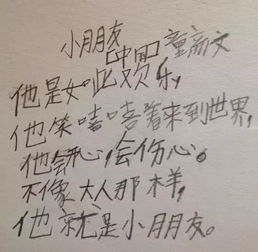 小朋友
童高文
他是如此欢乐,
他笑嘻嘻着来到世界,
他会开心会伤心。
不像大人那样,
他就是小朋友。